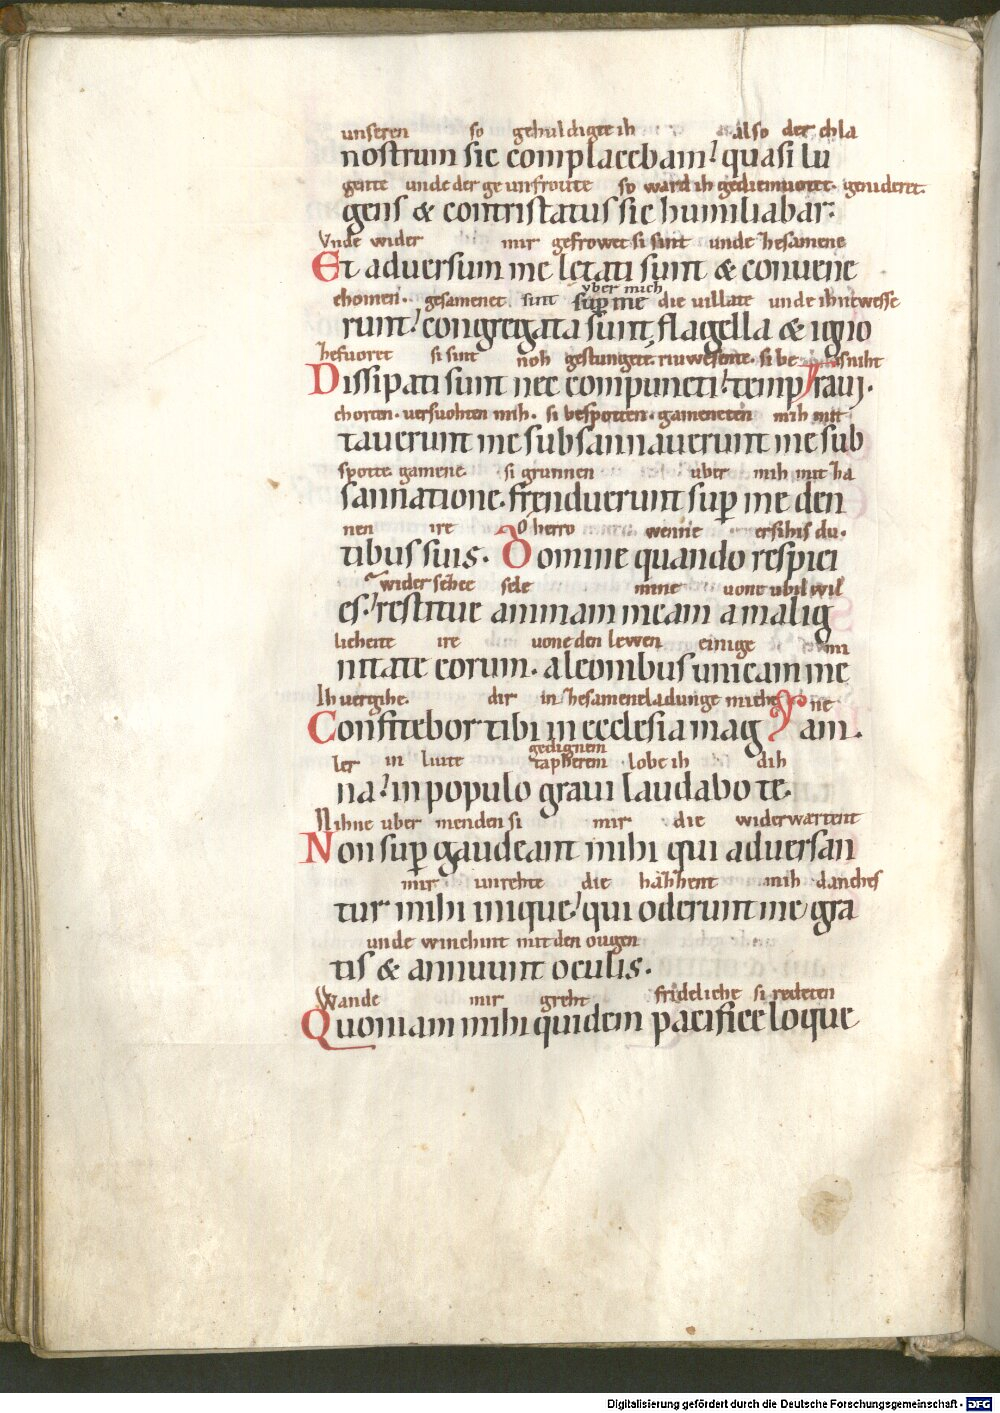 unseren so gehuldigte ih also der chla
nostrum sic complacebam? quasi lu
gente unde der ge unfroute so ward ih gediemuoter. genideret.
gens & contristatus sic humiliabar.
Vnde wider mir gefrowet si sint unde zhesamene
Et adversum me letati sunt & convene
chomen. gesamenet sint die uillate unde ih newesse
yber mich
runt? congregata sunt sup me flagella & igno
zhefuoret si sint noh gestungete riuwesente. si be niht
Dissipati sunt nec compuncti? temp raui.
chorten. uersuohten mih. si bespotten. gameneten mih mit
tauerunt me subsannauerunt me sub
spotte gamene. si grunnen uber mih mit za
sannatione. frenduerunt sup me den
nen ire O herro wenne ersihis du.
tibus suis. Domine quando respici
wider schee sele mine uone ubil wil
es? restitue animam meam a malig
licheite ire uone den lewen einige
nitate eorum. a leonibus unicam me
Ih uergihe. dir in zhesameneladunge miche ne
Confitebor tibi in ecclesia mag am.
ler in liute gedignem lobe ih dih
tapheren
na? in populo graui laudabo te.
Nih ne uber menden si mir die widerwartent
Non sup gaudeant mihi qui aduersan
mir unrehte die hazhent mih danches
tur mihi inique? qui oderunt me gra
unde winchint mit den ougen
tis & annuunt oculis.
Wande mir greht frideliche si redeten
Quoniam mihi quidem pacifice loque
Digitalisierung gefördert durch die Deutsche Forschungsgemeinschaft - DFG